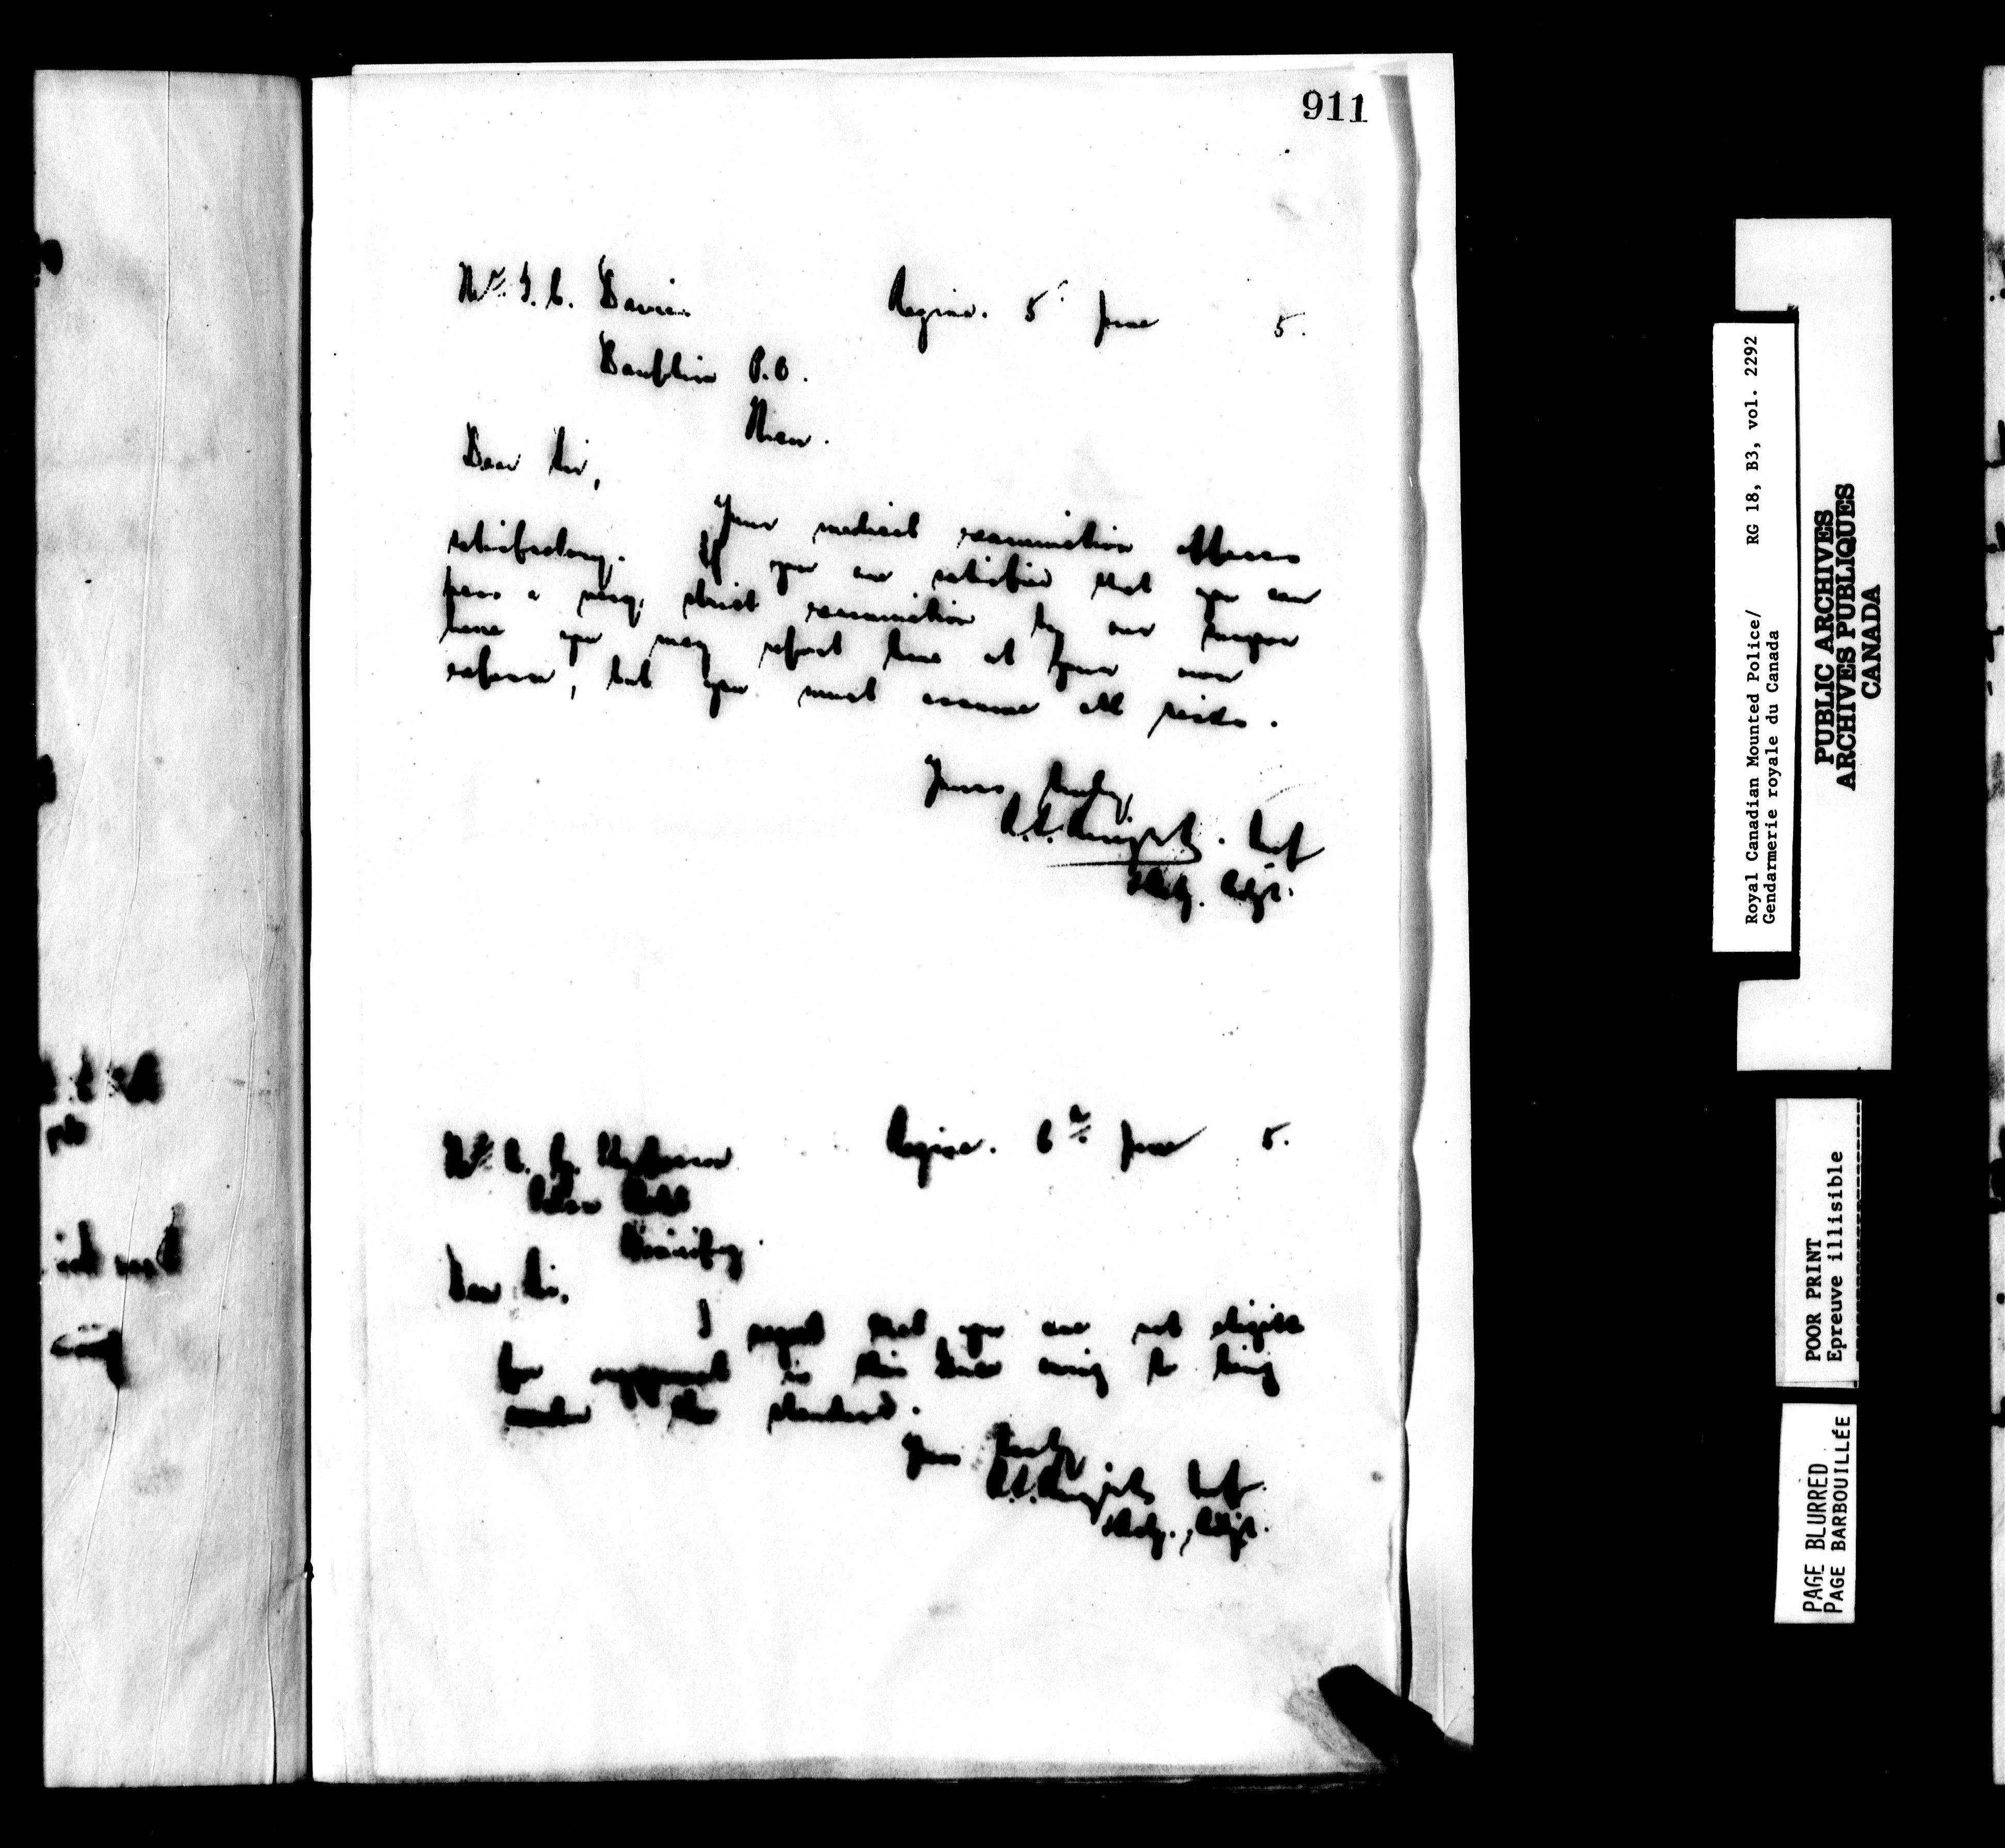 911
Mr. J. C. Davis Regina. 5 June 5.
Dauphin P.O.
Man.
Dear Sir,
Your medical examination appears
satisfactory. If you are satisfied that you can
pass a very strict examination by our Surgeon
here you may report here at your own
expense, but you must assume all risks.
Yours truly,
Supt
Adjt.
Regina. 6th June 5.
Mr.
Winnipeg.
Dear Sir,
I regret that you are not eligible
for engagement in this Force owing to being
under the standard.
Yours truly
Supt
Adjt.
Royal Canadian Mounted Police/ RG 18, B3, vol. 2292
Gendarmerie royale du Canada
PUBLIC ARCHIVES
ARCHIVES PUBLIQUES
CANADA
POOR PRINT
Epreuve illisible
PAGE BLURRED
PAGE BARBOUILLÉE